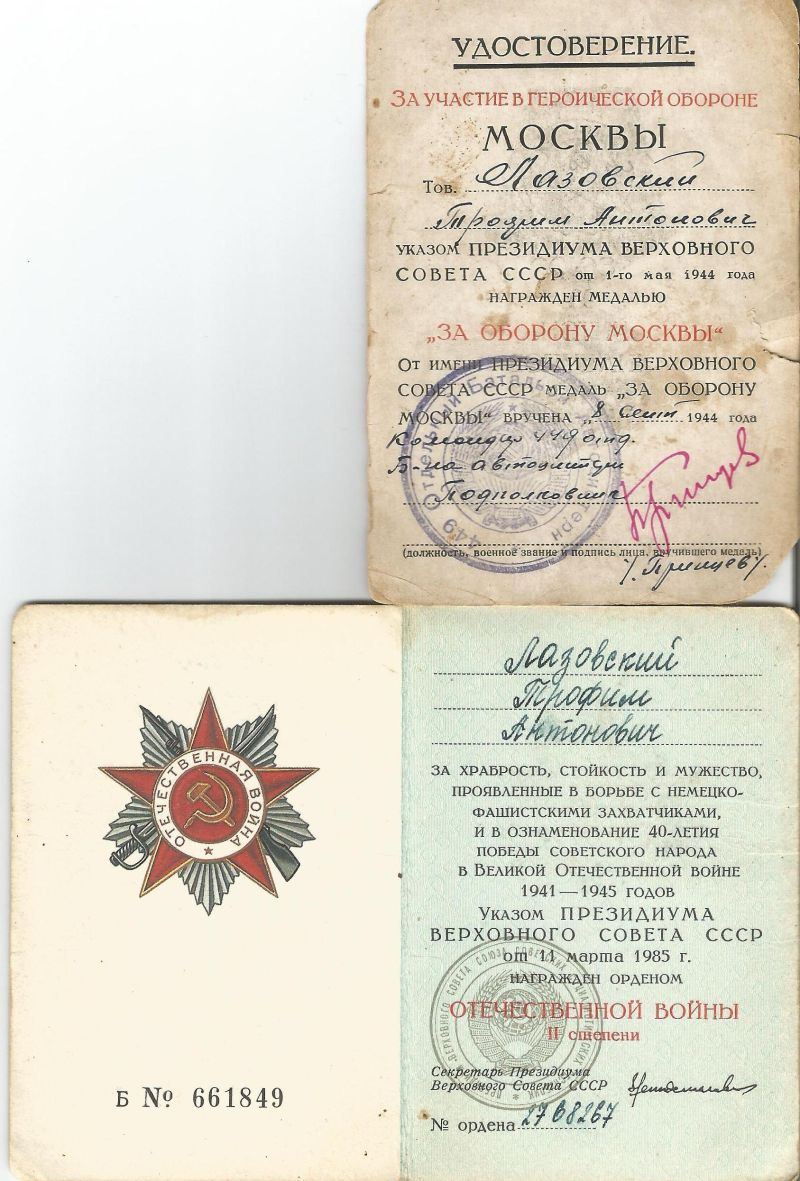 УДОСТОВЕРЕНИЕ.
ЗА УЧАСТИЕ В ГЕРОИЧЕСКОЙ ОБОРОНЕ
МОСКВЫ
Тов. Лазовский
Трофим Антонович
УКАЗОМ ПРЕЗИДИУМА ВЕРХОВНОГО
СОВЕТА СССР от 1-го мая 1944 года
НАГРАЖДЕН МЕДАЛЬЮ
„ЗА ОБОРОНУ МОСКВЫ“
От имени ПРЕЗИДИУМА ВЕРХОВНОГО
СОВЕТА СССР МЕДАЛЬ „ЗА ОБОРОНУ
МОСКВЫ“ ВРУЧЕНА „8 Сент 1944 года
Командир 449 отд.
Б-на автоцистерн
Подполковник
(должность, военное звание и подпись лица, вручившего медаль)
/. Принцев /.
449 Отдельный Батальон Автоцистерн
ОТЕЧЕСТВЕННАЯ ВОЙНА
Б № 661849
Лазовский
Трофим
Антонович
ЗА ХРАБРОСТЬ, СТОЙКОСТЬ И МУЖЕСТВО,
ПРОЯВЛЕННЫЕ В БОРЬБЕ С НЕМЕЦКО-
ФАШИСТСКИМИ ЗАХВАТЧИКАМИ,
И В ОЗНАМЕНОВАНИЕ 40-ЛЕТИЯ
ПОБЕДЫ СОВЕТСКОГО НАРОДА
В ВЕЛИКОЙ ОТЕЧЕСТВЕННОЙ ВОЙНЕ
1941—1945 ГОДОВ
УКАЗОМ ПРЕЗИДИУМА
ВЕРХОВНОГО СОВЕТА СССР
от 11 марта 1985 г.
НАГРАЖДЕН ОРДЕНОМ
ОТЕЧЕСТВЕННОЙ ВОЙНЫ
II степени
Секретарь Президиума
Верховного Совета СССР
№ ордена 2768267